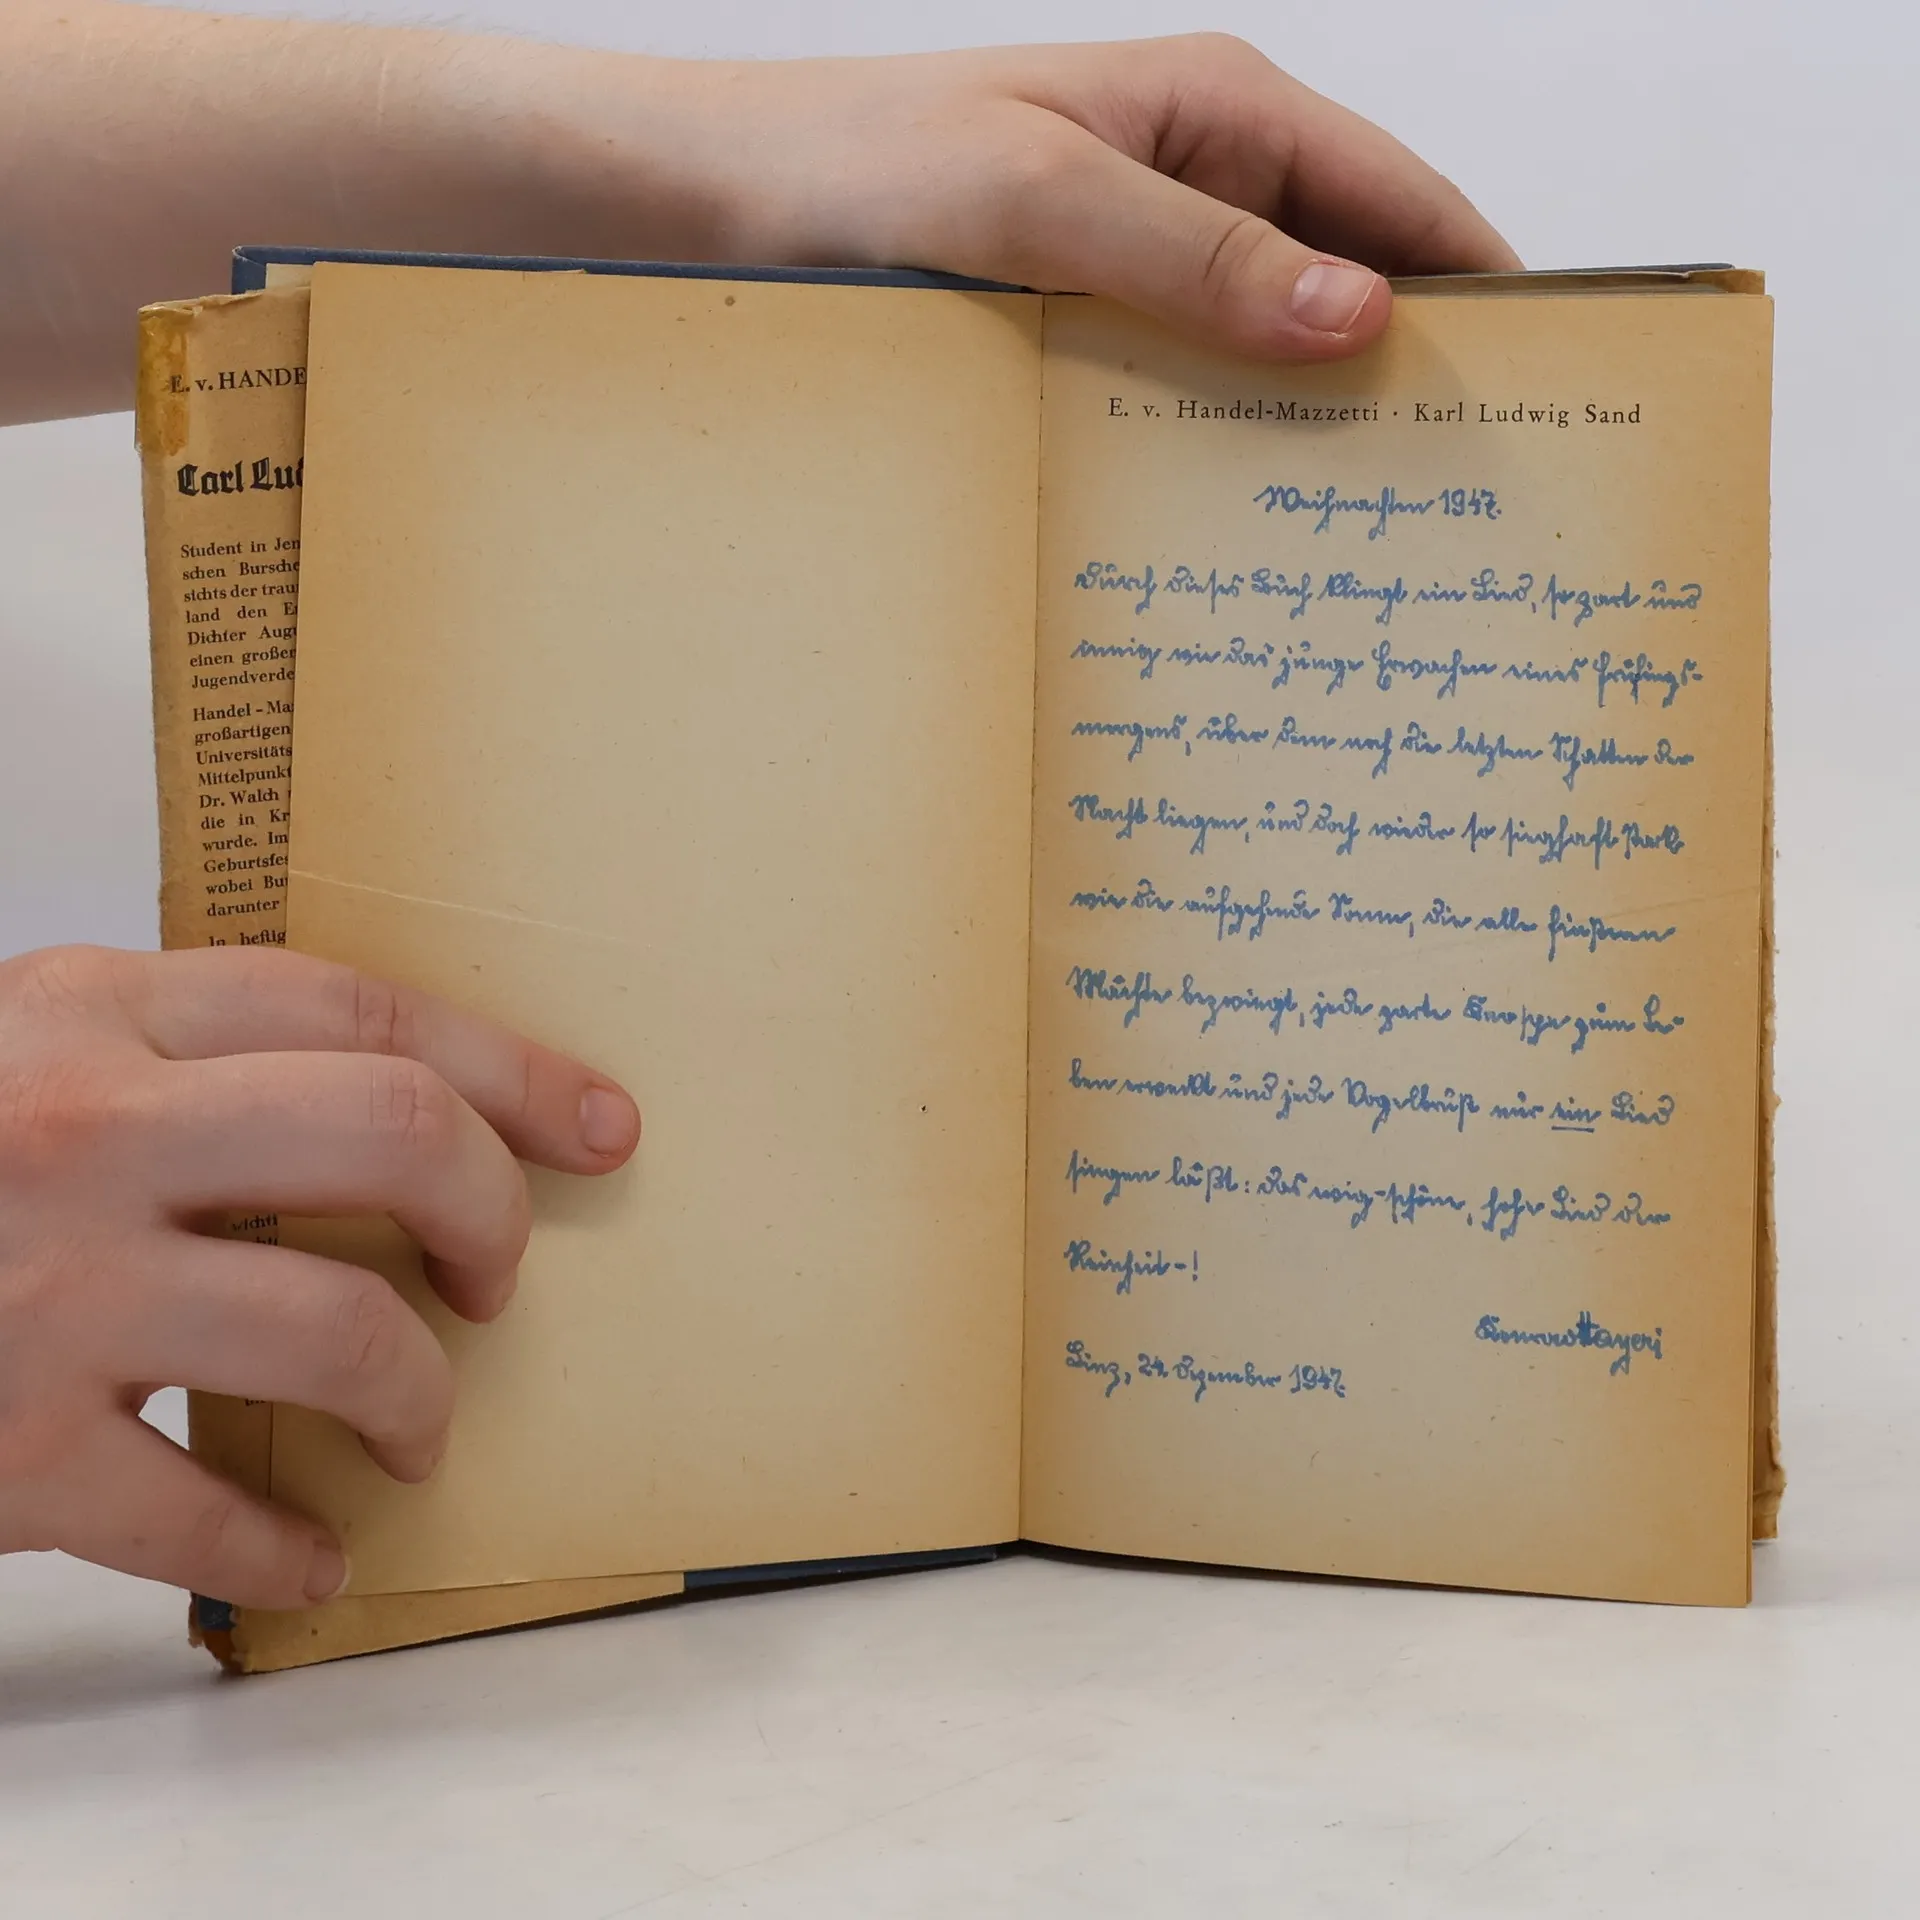 E. v. HANDE
Carl Lud
Student in Jen
schen Bursche
sichts der trau
land den E
Dichter Augu
einen großer
Jugendverde
Handel - Ma
großartigen
Universitäts
Mittelpunkt
Dr. Walch
die in Kr
wurde. Im
Geburtsfes
wobei Bu
darunter
In heftig
wichti
E. v. Handel-Mazzetti · Karl Ludwig Sand
Weihnachten 1947.
Durch dieses Buch klingt ein Lied, so zart und
innig wie das junge Erwachen eines Frühlings-
morgens, über dem noch die letzten Schatten der
Nacht liegen, und doch wieder so sieghaft stark
wie die aufgehende Sonne, die alle finsteren
Mächte bezwingt, jede zarte Knospe zum Le-
ben erweckt und jede Vogelbrust nur ein Lied
singen läßt: das ewig-schöne, hohe Lied der
Reinheit-!
Konrad
Linz, 24. Dezember 1947.